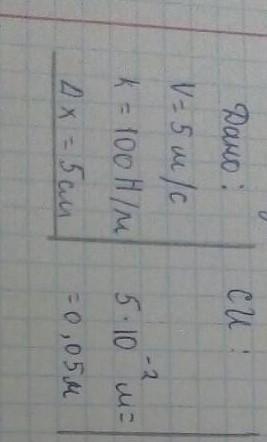 Дано:
V = 5 м/с
k = 100 Н/м
Δx = 5 см
СИ:
5·10⁻² м =
= 0,05 м